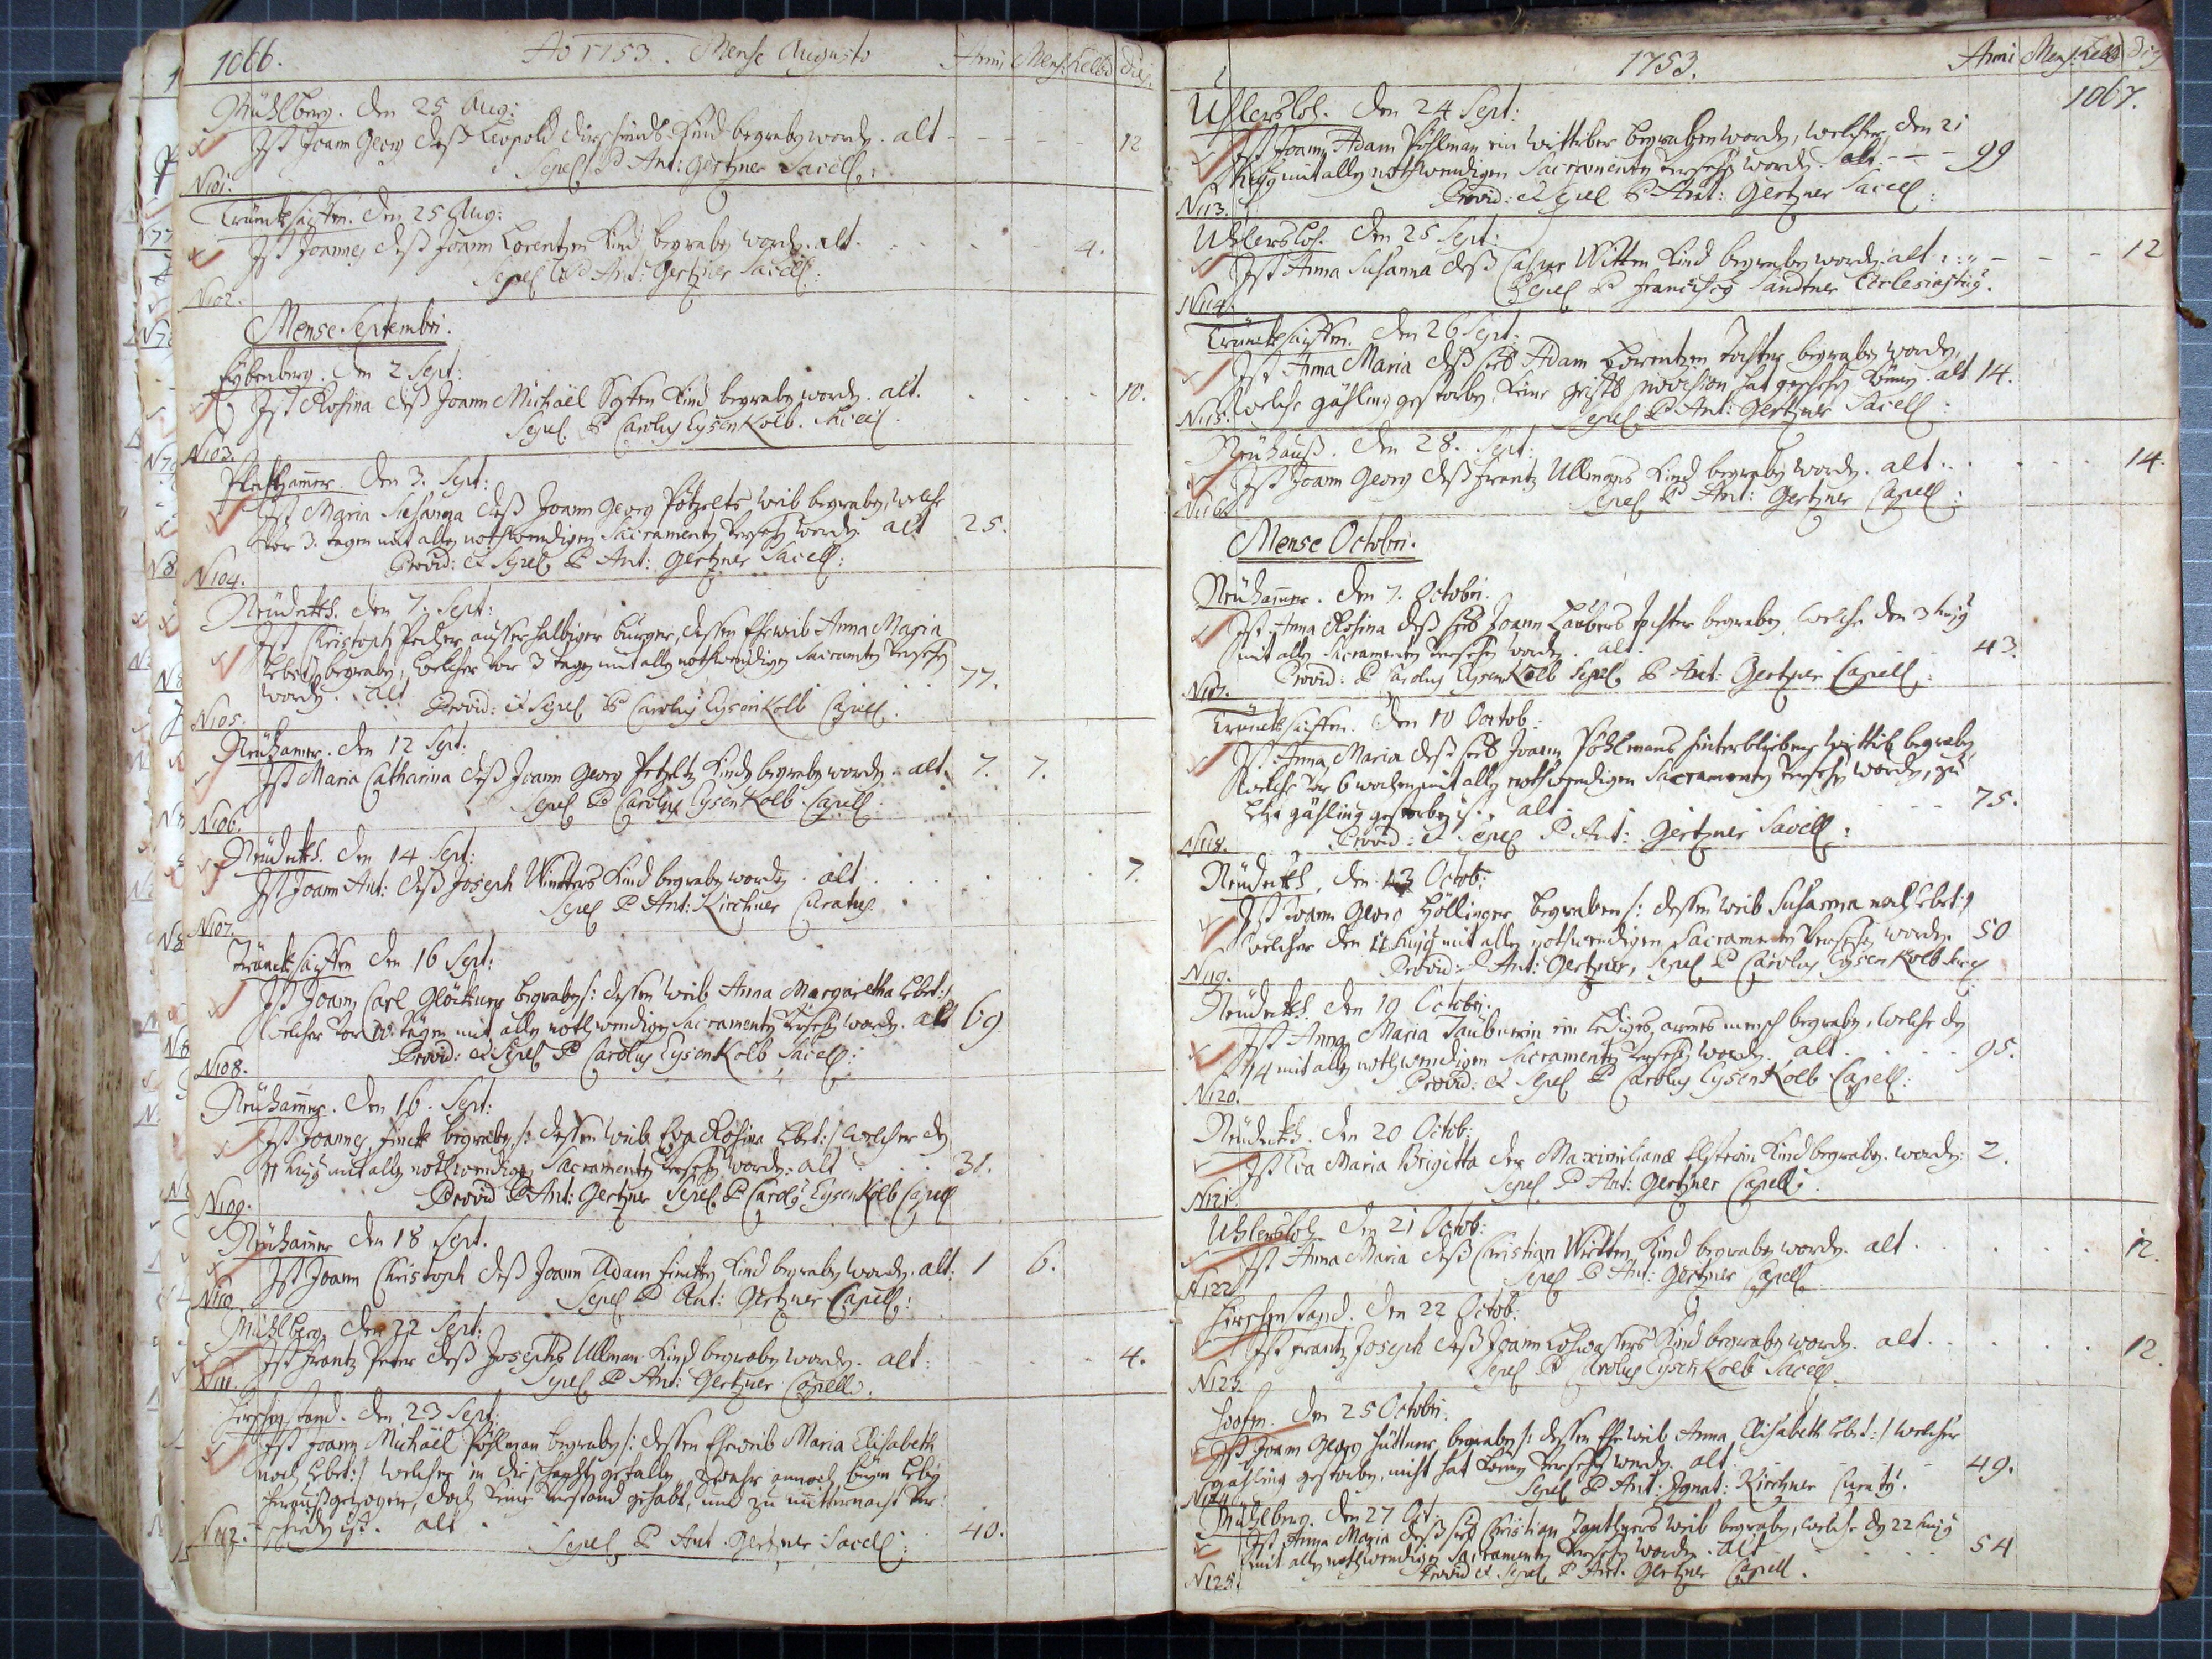 1066. Ao 1753. Mense Augusto Anni Mens: hebd dies
Mühlberg. den 25 Aug:
Ist Joann Georg deß Leopold Kind begraben worden. alt - - - 12
N101. Sepel P Ant: Gertzner Sacell:
Trinckseiffen. den 25 Aug:
Ist Joannes deß Joann Lorentzen Kind begraben worden. alt. 4.
Sepel P Ant: Gertzner Sacell:
N102.
Mense Septembri.
Eybenberg. den 2 Sept:
Ist Rosina deß Joann Michaël Kind begraben worden. alt. 10.
Sepel P Carolus Eysenkolb. Sacell.
N103.
den 3. Sept:
Ist Maria Susanna deß Joann Georg Pötzelts weib begraben, welche
vor 3. tagen mit allen nothwendigen Sacramenten versehen worden. alt 25.
Provid: et Sepel P Ant: Gertzner Sacell:
N104.
Neüdeckh. den 7. Sept:
Ist Christoph ausserhalbiger burger, dessen Eheweib Anna Maria
lebet, begraben, welcher vor 3 tagen mit allen nothwendigen Sacramenten versehen
worden. alt 77.
Provid: et Sepel P Carolus Eysenkolb Capell.
N105.
Neühamer. den 12 Sept:
Ist Maria Catharina deß Joann Georg Petzelts Kind begraben worden. alt. 7. 7.
Sepel P Carolus Eysenkolb Capell:
N106.
Neüdeckh. den 14 Sept:
Ist Joann Ant: deß Joseph Kind begraben worden. alt 7.
Sepel P Ant: Kirchner Curatus.
N107.
Trinckseiffen den 16 Sept:
Ist Joann Carl Glöckner begraben /: dessen weib Anna Margaretha lebet :/
welcher vor 10. tägen mit allen nothwendigen Sacramenten versehen worden. alt 69
Provid: et Sepel P Carolus Eysenkolb Sacell:
N108.
Neühamer. den 16. Sept:
Ist Joannes Finck begraben /: dessen weib Eva Rosina lebet :/ welcher den
11 hujus mit allen nothwendigen Sacramenten versehen worden. alt 31.
Provid P Ant: Gertzner Sepel P Carolus Eysenkolb Capell
N109.
Neühamer den 18 Sept.
Ist Joann Christoph deß Joann Adam Fincken Kind begraben worden. alt: 1 6.
N110 Sepel P Ant: Gertzner Capell:
Mühlberg den 22 Sept:
Ist Frantz Peter deß Josephs Ullman Kind begraben worden. alt: 4.
N111. Sepel P Ant: Gertzner Capell.
Hirschenstand. den 23 Sept:
Ist Joann Michaël Pöhlman begraben /: dessen Eheweib Maria Elisabeth
noch lebet :/ welcher in die schacht gefallen, zwahr annoch lebig
heraußgezogen, doch keine verstand gehabt, und zu mitternacht ver:
N112. schieden ist. alt 40.
Sepel P Ant Gertzner Sacell:
1753. Anni Mens: hebd dies
1067.
Uhlersloh. den 24 Sept:
Ist Joann Adam Pöhlman ein wittiber begraben worden, welcher den 21
hujus mit allen nothwendigen Sacramenten versehen worden alt. - - - 99
N113. Provid: et Sepel P Ant: Gertzner Sacell:
Uhlersloh. den 25 Sept:
Ist Anna Susanna deß Caspar Witten Kind begraben worden. alt 12
Sepel P Franciscus Sandtner Ecclesiastius.
N114.
Trinckseiffen. den 26 Sept:
Ist Anna Maria deß seel Adam Lorentzen tochter begraben worden,
welche gähling gestorben, keine geistl provision hat geschehen können. alt 14.
N115. Sepel P Ant: Gertzner Sacell:
Neühauß. den 28. Sept:
Ist Joann Georg deß Frantz Ullmans Kind begraben worden. alt 14.
N116. Sepel P Ant: Gertzner Capell:
Mense Octobri.
Neühamer. den 7. Octobri.
Ist Anna Rosina deß seel Joann tochter begraben, welche den 3 hujus
mit allen Sacramenten versehen worden. alt. 43.
Provid: P Carolus Eysenkolb Sepel P Ant: Gertzner Capell:
N117.
Trinckseiffen. den 10 Octob:
Ist Anna Maria deß seel Joann Pöhlmans hinterbliebene wittib begraben,
welche vor 6 wochen mit allen nothwendigen Sacramenten versehen worden,
gähling gestorben ist. alt 75.
N118. Provid: et Sepel P Ant: Gertzner Sacell:
Neüdeckh. den 13 Octob:
Ist Joann Georg Höllinger begraben /: dessen weib Susanna noch lebet :/
welcher den 11 hujus mit allen nothwendigen Sacramenten versehen worden. 50
N119. Provid: P Ant: Gertzner, Sepel P Carolus Eysenkolb Sacell
Neüdeckh. den 19 Octobri.
Ist Anna Maria Taubnerin ein lediges armes mensch begraben, welche den
14 mit allen nothwendigen Sacramenten versehen worden. alt 95.
Provid: et Sepel P Carolus Eysenkolb Capell:
N120.
Neüdeckh. den 20 Octob:
Ist Eva Maria Brigitta der Maximilianæ Kind begraben worden. 2.
Sepel P Ant: Gertzner Capell:
N121.
Uhlersloh den 21 Octob:
Ist Anna Maria deß Christian Witten Kind begraben worden. alt 12.
N122. Sepel P Ant: Gertzner Capell
Hirschenstand. den 22 Octob:
Ist Frantz Joseph deß Joann Kind begraben worden. alt 12.
Sepel P Carolus Eysenkolb Sacell.
N123.
den 25 Octobri.
Ist Joann Georg Hüttner begraben /: dessen Eheweib Anna Elisabeth lebet :/ welcher
gähling gestorben, nicht hat können versehen werden. alt 49.
N124. Sepel P Ant: Ignat: Kirchner Curatus.
Mühlberg. den 27 Oct:
Ist Anna Maria deß seel Christian weib begraben, welche den 22 hujus
mit allen nothwendigen Sacramenten versehen worden. alt 54
N125. Provid et Sepel P Ant. Gertzner Capell.